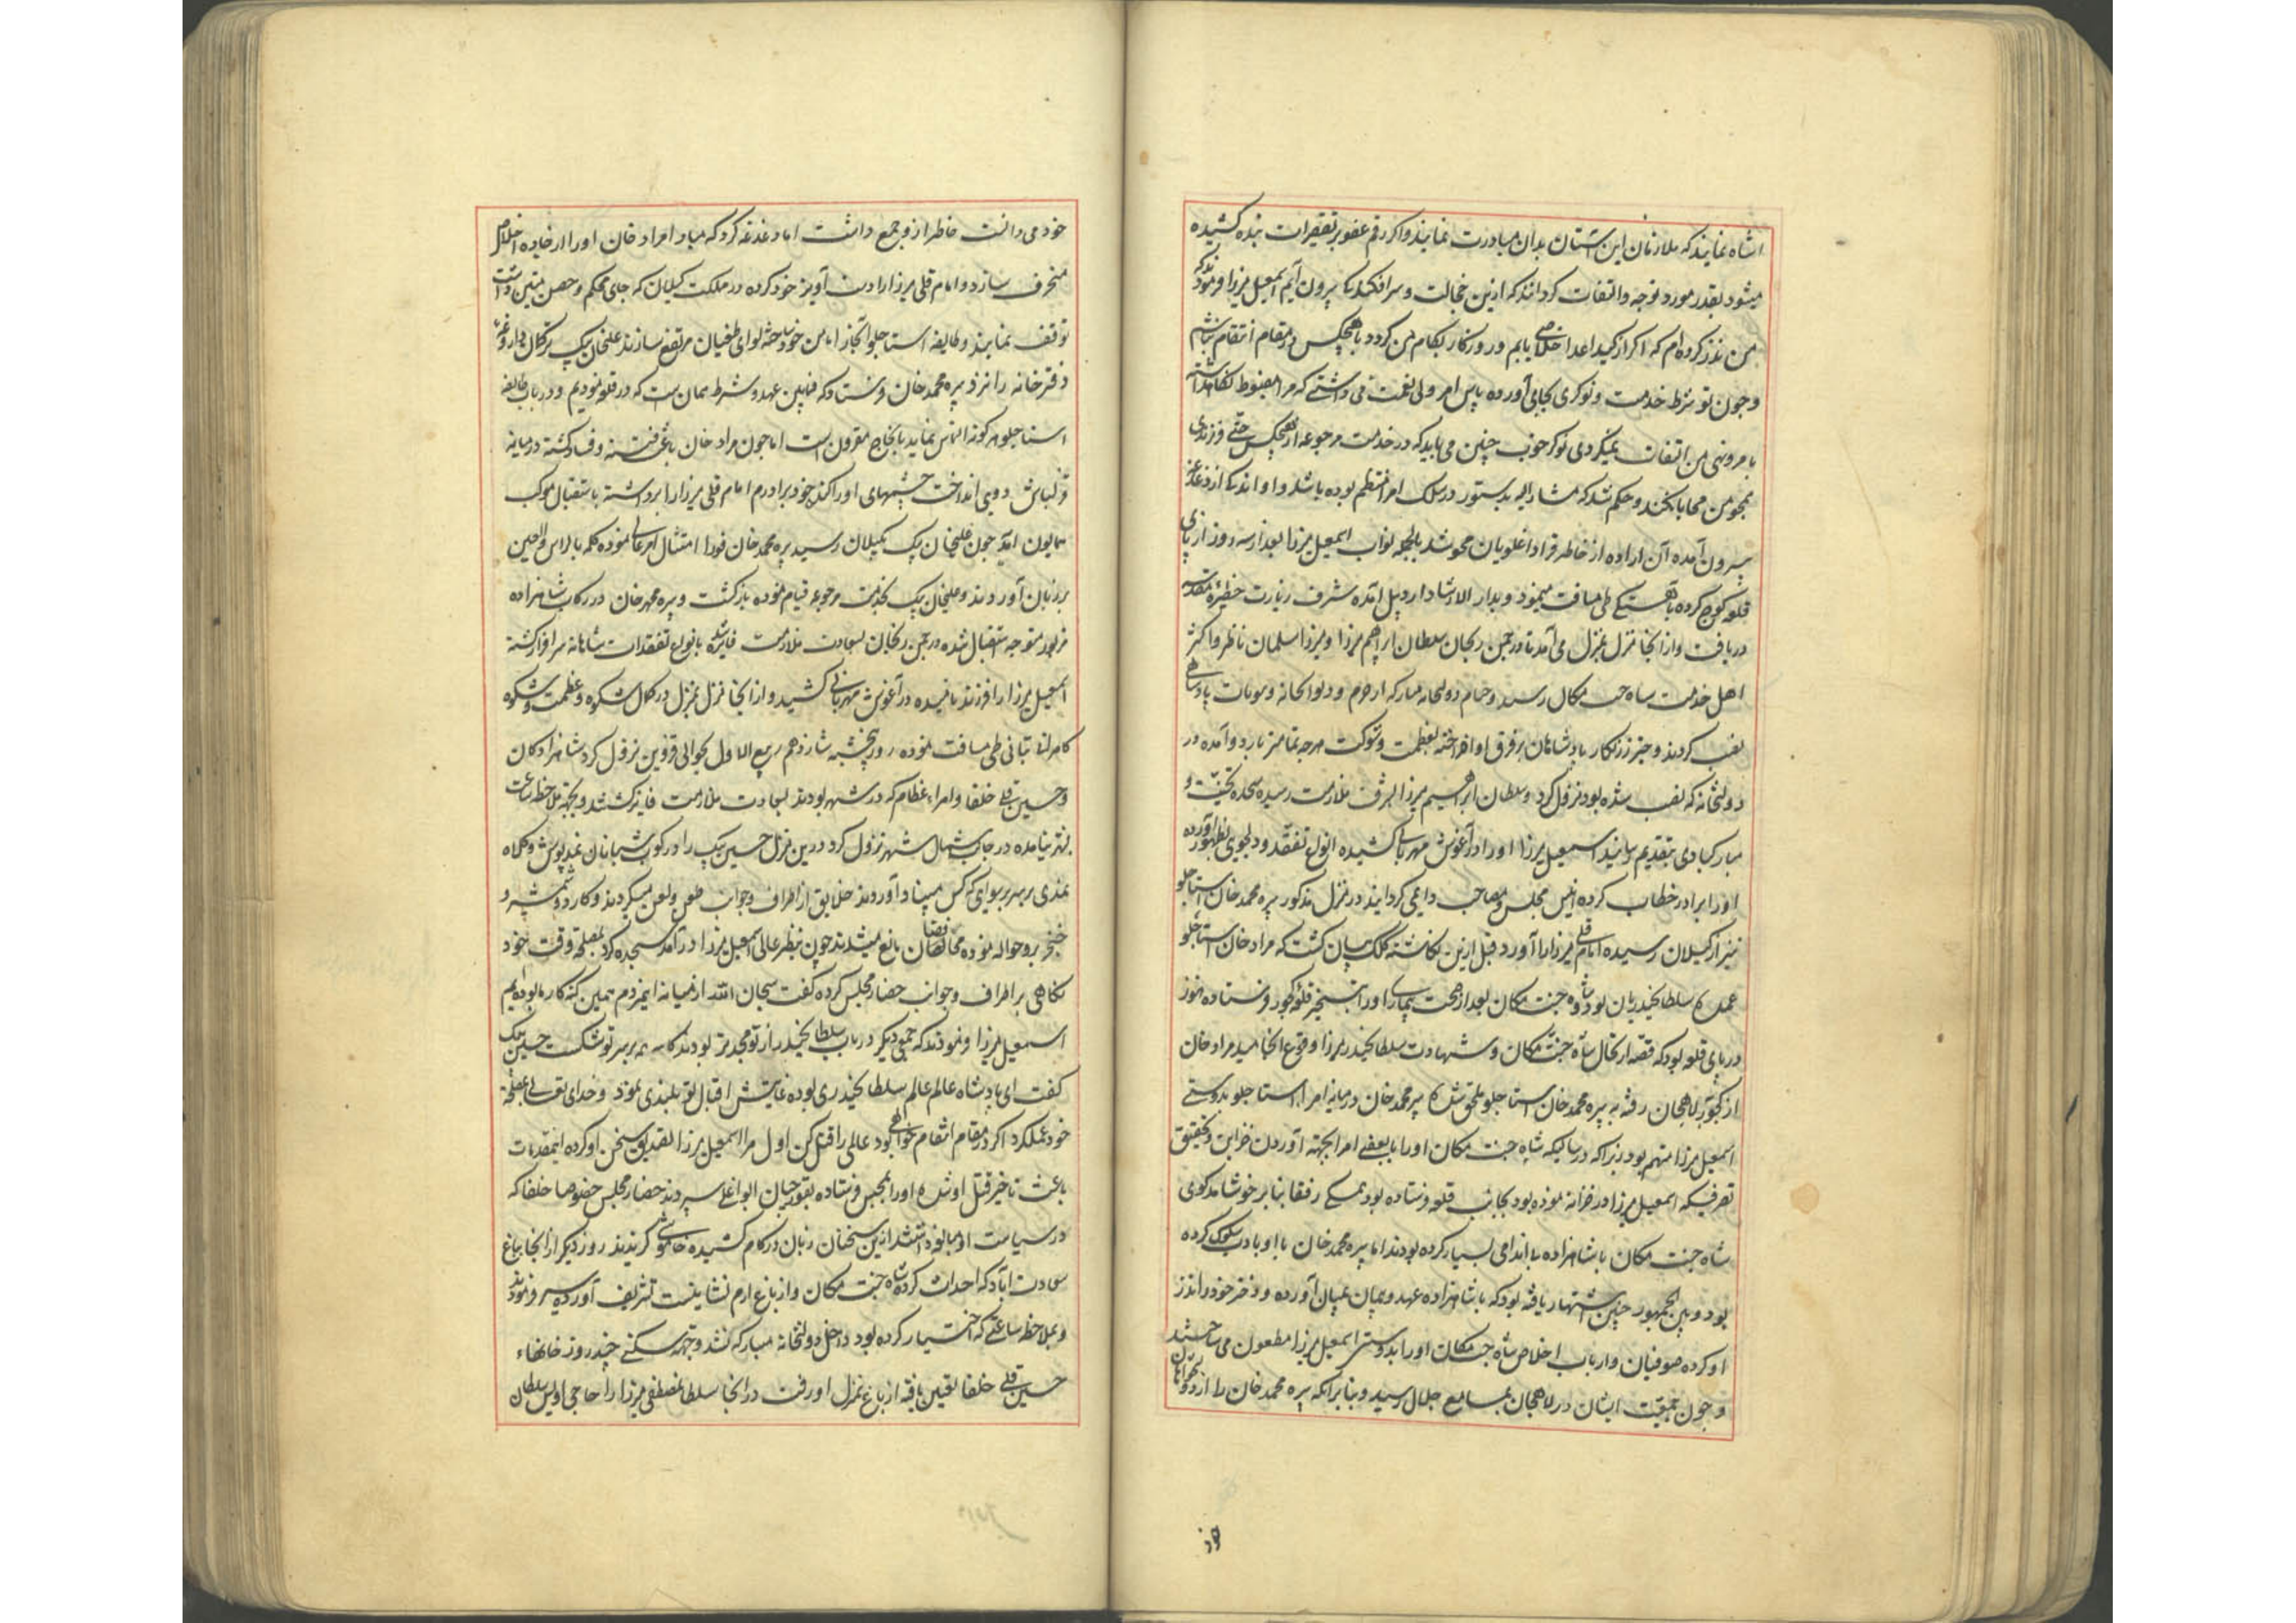 اشاه نمایند که ملازمان این آستان بدان مبادرت نمایند و اکر رقم عفو بر تقصیرات بنده کشیده
میشود بقدر مورد توجه و التفات کردانند که ازین خجالت و سرافکندکی بیرون آیم اسمعیل میرزا فرمودند که
من نذر کرده‌ام که اکر از کید اعدا خلاصی یابم و روزکار بکام من کردد با هیچکس در مقام انتقام نباشم
و چون تو شرط خدمت و نوکری بجای آورده پاس امر ولی نعمت می داشتی که مرا مضبوط نکاهداشته
بامر و نهی من التفات نمیکردی نوکر خوب چنین می باید که در خدمت مرجوعه از هیچکس حتی فرزندی
همچو من محابا نکند و حکم شد که مشار الیه بدستور در سلک امرا منتظم بوده باشد و او اندکی از دغدغه
بیرون آمده آن اراده از خاطر قراداغلویان محو شد بالجمله نواب اسمعیل میرزا بعد از سه روز از پای
قلعه کوچ کرده باهستکی طی مسافت مینمود و بدار الارشاد اردبیل آمده شرف زیارت حظیره مقدسه
دریافت و از انجا منزل بمنزل می آمد تا در چمن زنجان سلطان ابراهیم میرزا و میرزا سلمان ناظر و اکثر
اهل خدمت شاه جنت مکان رسیده خیام دولتخانه مبارکه از حرم و دیوانخانه و بیوتات پادشاهی
نصب کردند و چتر زرنکار پادشاهان بر فرق او افراخته بعظمت و شوکت هرچه تمامتر بارد و آمده در
دولتخانه که نصب شده بود نزول کرد و سلطان ابراهیم میرزا بشرف ملازمت رسیده سجده تحیت و
مبارکبادی بتقدیم رسانید اسمعیل میرزا او را در آغوش مهربانی کشیده انواع تفقد و دلجویی بظهور آورده
او را برادر خطاب کرده انیس مجلس و مصاحب دایمی کردانید در منزل مذکور پیره محمد خان استاجلو
نیز از کیلان رسیده امام قلی میرزا را آورد قبل ازین نکاشته کلک بیان کشت که مراد خان استاجلو
عمده سلطان حیدریان بود شاه جنت مکان بعد از صحت بیماری او را بتسخیر قلعه کجور فرستاده هنوز
در پای قلعه بود که قصه ارتحال شاه جنت مکان و شهادت سلطان حیدر میرزا وقوع انجامید مراد خان
از کجور بلاهیجان رفته به پیره محمد خان استاجلو ملحق شد پیره محمد خان در میانه امراء استاجلو بدوستی
اسمعیل میرزا متهم بود زیرا که در سالیکه شاه جنت مکان او را با بعضی امرا بجهته آوردن خزاین و تحقیق
تصرفیکه اسمعیل میرزا در خزانه نموده بود بجانب قلعه فرستاده بود همکی رفقا بنا بر خوشامدکوی
شاه جنت مکان با شاهزاده بی اندامی بسیار کرده بودند اما پیره محمد خان با او بادب سلوک کرده
بود و بین الجمهور چنین اشتهار یافته بود که با شاهزاده عهد و پیمان بمیان آورده و دختر خود را نذر
او کرده صوفیان و ارباب اخلاص شاه جنت مکان او را بدوستی اسمعیل میرزا مطعون می ساختند
و چون جمعیت ایشان در لاهیجان بمسامع جلال رسید و بنا برانکه پیره محمد خان را از دولتخواهان
خود
خود می دانست خاطر ازو جمع داشت اما دغدغه کرد که مبادا مراد خان او را از جاده اخلاص
منحرف سازد و امام قلی میرزا را دست آویز خود کرده در مملکت کیلان که جای محکم و حصن متین داشت
توقف نمایند و طایفه استاجلو انجا را مامن خود ساخته لوای طغیان مرتفع سازند علیخان بیک ترکمان داروغه
دفترخانه را نزد پیره محمد خان فرستاد که فیمابین عهد و شرط همان است که در قلعه نمودیم و در باب طایفه
استاجلو هر کونه التماس نماید بانجاح مقرون است اما چون مراد خان باعث فتنه و فساد کشته در میانه
قزلباش دویی انداخت چشمهای او را کنده خود برادرم امام قلی میرزا را برداشته باستقبال موکب
همایون آید چون علیخان بیک بکیلان رسید پیره محمد خان فورا امتثال امر عالی نموده کلمه بالراس والعین
بر زبان آوردند و علیخان بیک بخدمت مرجوعه قیام نموده بازکشت و پیره محمد خان در رکاب شاهزاده
مزبور متوجه استقبال شده در چمن زنجان بسعادت ملازمت فایز شده بانواع تفقدات شاهانه سرافراز کشته
اسمعیل میرزا را فرزند نامیده در آغوش مهربانی کشید و از انجا منزل بمنزل در کمال شکوه و عظمت و شکوه
کامرانی تبانی طی مسافت نموده روز پنجشنبه شانزدهم ربیع الاول بحوالی قزوین نزول کرد شاهزادکان
و حسین قلی خلفا و امراء عظام که در شهر بودند بسعادت ملازمت فایز کشتند و بجهته ملاحظه ساعت
بشهر نیامده در جانب شمال شهر نزول کرد درین منزل حسین بیک را در کوت شبانان نمد پوش و کلاه
نمدی بر سر برسوایی که کس مبیناد آوردند خلایق از اطراف و جوانب طعن و لعن میکردند و کارد و شمشیر و
خنجر برو حواله نموده محافظان مانع میشدند چون بنظر عالی اسمعیل میرزا درآمد سجده کرد بمصلحت وقت خود
نکاهی بر اطراف و جوانب حضار مجلس کرده کفت سبحان الله از میانه این مردم همین کنه کار ما بوده‌ایم
اسمعیل میرزا فرمودند که جمعی دیکر در باب سلطان حیدر از تو مجدتر بودند کاسه هم بر سر تو شکست حسین بیک
کفت ای پادشاه عالم عالم سلطان حیدری بوده غایتش اقبال تو بلندی نمود و خدای تعالی بمصلحت
خود عمل کرد اکر در مقام انتقام خواهی بود عالمی را قتل کن اول مرا اسمعیل میرزا تصدیق سخن او کرده اینمقدمات
باعث تاخیر قتل او شده او را بحبس فرستاده بقورچیان ابواغلی سپردند حضار مجلس خصوصا خلفا که
در سیاست او مبالغه داشتند ازین سخنان زبان در کام کشیده خاموشی کزیدند روز دیکر از انجا بباغ
سعادت آباد که احداث کرده شاه جنت مکان و از باغ ارم نشانیست تشریف آورده سیر فرمودند
و بملاحظه ساعتی که اختیار کرده بود داخل دولتخانه مبارکه نشد و جهته سکنی چند روزه خانهاء
حسین قلی خلفا تعیین یافته از باغ بمنزل او رفت در انجا سلطان مصطفی میرزا را حاجی اویس سلطان